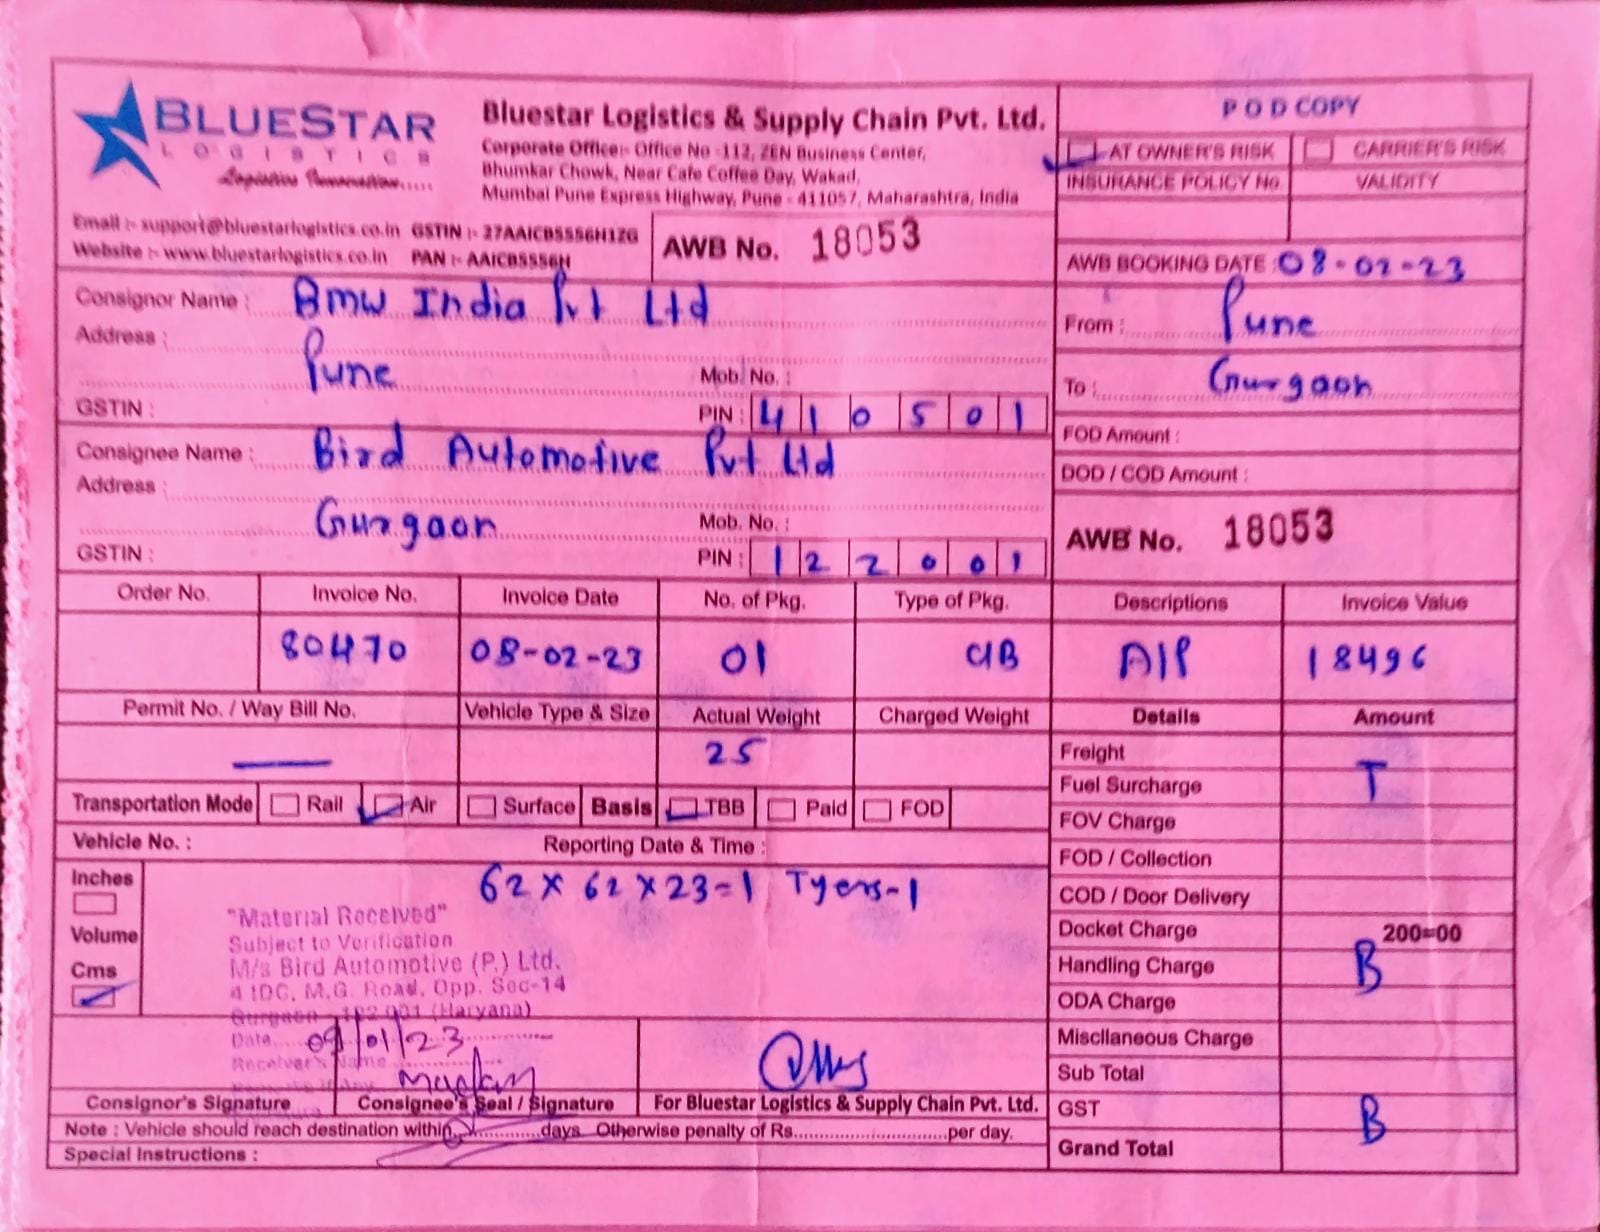 BLUESTAR
LOGISTICS
Logistics Innovation.....
Bluestar Logistics & Supply Chain Pvt. Ltd.
Corporate Office:- Office No -112, ZEN Business Center,
Bhumkar Chowk, Near Cafe Coffee Day, Wakad,
Mumbai Pune Express Highway, Pune - 411057, Maharashtra, India
Email :- support@bluestarlogistics.co.in GSTIN :- 27AAICB5556H1ZG
Website :- www.bluestarlogistics.co.in PAN :- AAICB5556H
AWB No. 18053
POD COPY
AT OWNER'S RISK CARRIER'S RISK
INSURANCE POLICY No. VALIDITY
AWB BOOKING DATE : 08-02-23
From : Pune
To : Gurgaon
FOD Amount :
DOD / COD Amount :
AWB No. 18053
Consignor Name : Bmw India Pvt Ltd
Address :
Pune Mob. No. :
GSTIN : PIN : 410501
Consignee Name : Bird Automotive Pvt Ltd
Address :
Gurgaon Mob. No. :
GSTIN : PIN : 122001
Order No. Invoice No. Invoice Date No. of Pkg. Type of Pkg. Descriptions Invoice Value
80470 08-02-23 01 C/B A/P 18496
Permit No. / Way Bill No. Vehicle Type & Size Actual Weight Charged Weight Details Amount
— 25
Transportation Mode Rail Air Surface Basis TBB Paid FOD
Vehicle No. : Reporting Date & Time :
Inches
Volume
Cms
62 x 62 x 23=1 Tyers-1
"Material Received"
Subject to Verification
M/s Bird Automotive (P.) Ltd.
4 IDC, M.G. Road, Opp. Sec-14
Gurgaon - 122 001 (Haryana)
Date.... 09/01/23
Receiver's Name
Madan
Freight
Fuel Surcharge T
FOV Charge
FOD / Collection
COD / Door Delivery
Docket Charge 200=00
Handling Charge B
ODA Charge
Miscllaneous Charge
Sub Total
GST B
Grand Total
Consignor's Signature Consignee's Seal / Signature For Bluestar Logistics & Supply Chain Pvt. Ltd.
Note : Vehicle should reach destination within..............days Otherwise penalty of Rs..............................per day.
Special Instructions :